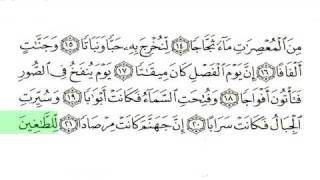 مِنَ ٱلْمُعْصِرَٰتِ مَآءً ثَجَّاجًا ﴿١٤﴾ لِّنُخْرِجَ بِهِۦ حَبًّا وَنَبَاتًا ﴿١٥﴾ وَجَنَّٰتٍ
أَلْفَافًا ﴿١٦﴾ إِنَّ يَوْمَ ٱلْفَصْلِ كَانَ مِيقَٰتًا ﴿١٧﴾ يَوْمَ يُنفَخُ فِى ٱلصُّورِ
فَتَأْتُونَ أَفْوَاجًا ﴿١٨﴾ وَفُتِحَتِ ٱلسَّمَآءُ فَكَانَتْ أَبْوَٰبًا ﴿١٩﴾ وَسُيِّرَتِ
ٱلْجِبَالُ فَكَانَتْ سَرَابًا ﴿٢٠﴾ إِنَّ جَهَنَّمَ كَانَتْ مِرْصَادًا ﴿٢١﴾ لِّلطَّٰغِينَ